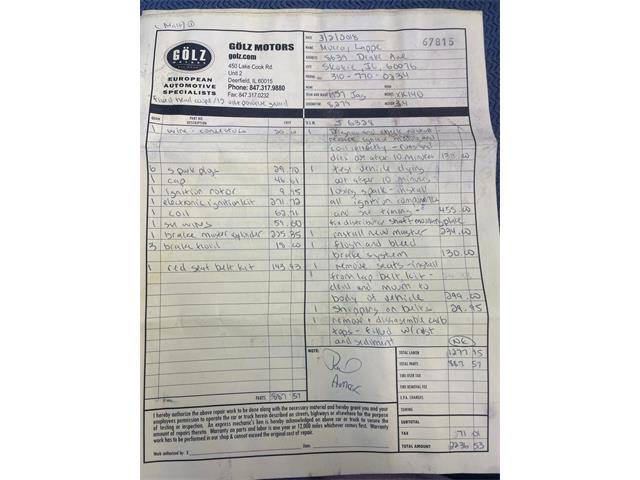 GÖLZ
MOTORS
EUROPEAN
AUTOMOTIVE
SPECIALISTS
GÖLZ MOTORS
golz.com
450 Lake Cook Rd.
Unit 2
Deerfield, IL 60015
Phone: 847.317.9880
Fax: 847.317.0232
DATE 3/2/2018
67815
NAME Murray Lappe
ADDRESS 8639 Drake Ave
Skokie, IL, 60076
PHONE 310-770-0234
1957 Jag XK140
8279
J 6328
QUAN PART NO. DESCRIPTION COST
1 wire - connectors 20.00
6 spark plugs 29.70
1 cap 46.61
1 ignition rotor 9.95
1 electronic ignition kit 271.72
1 coil 62.71
1 set wires
1 brake master cylinder 225.35
3 brake fluid 18.00
1 red seat belt kit 143.93
PARTS 887 57
dies out after 10 minutes
1 test vehicle dying
out after 10 minutes
losing spark - install
all ignition components
and set timing - 455.00
fix distributor shaft mounting plate
1 install new master 234.00
1 flush and bleed
brake system 130.00
1 remove seats - install
front lap belt kit -
drill and mount to
body of vehicle 299.00
1 shipping on belts 29.95
1 remove + disassemble carb
tops - filled w/rust
and sediment
NC
NOTE:
Paid
Amex
TOTAL LABOR 1277 95
TOTAL PARTS 887 57
TIRE USER TAX
TIRE REMOVAL FEE
E.P.A. CHARGES
TOWING
SUBTOTAL
TAX 71 01
TOTAL AMOUNT 2236 53
I hereby authorize the above repair work to be done along with the necessary material and hereby grant you and your
employees permission to operate the car or truck herein described on streets, highways or elsewhere for the purpose
of testing or inspection. An express mechanic's lien is hereby acknowledged on above car or truck to secure the
amount of repairs thereto. Warranty on parts and labor is one year or 12,000 miles whichever comes first. Warranty
work has to be performed in our shop & cannot exceed the original cost of repair.
Work authorized by X
Date